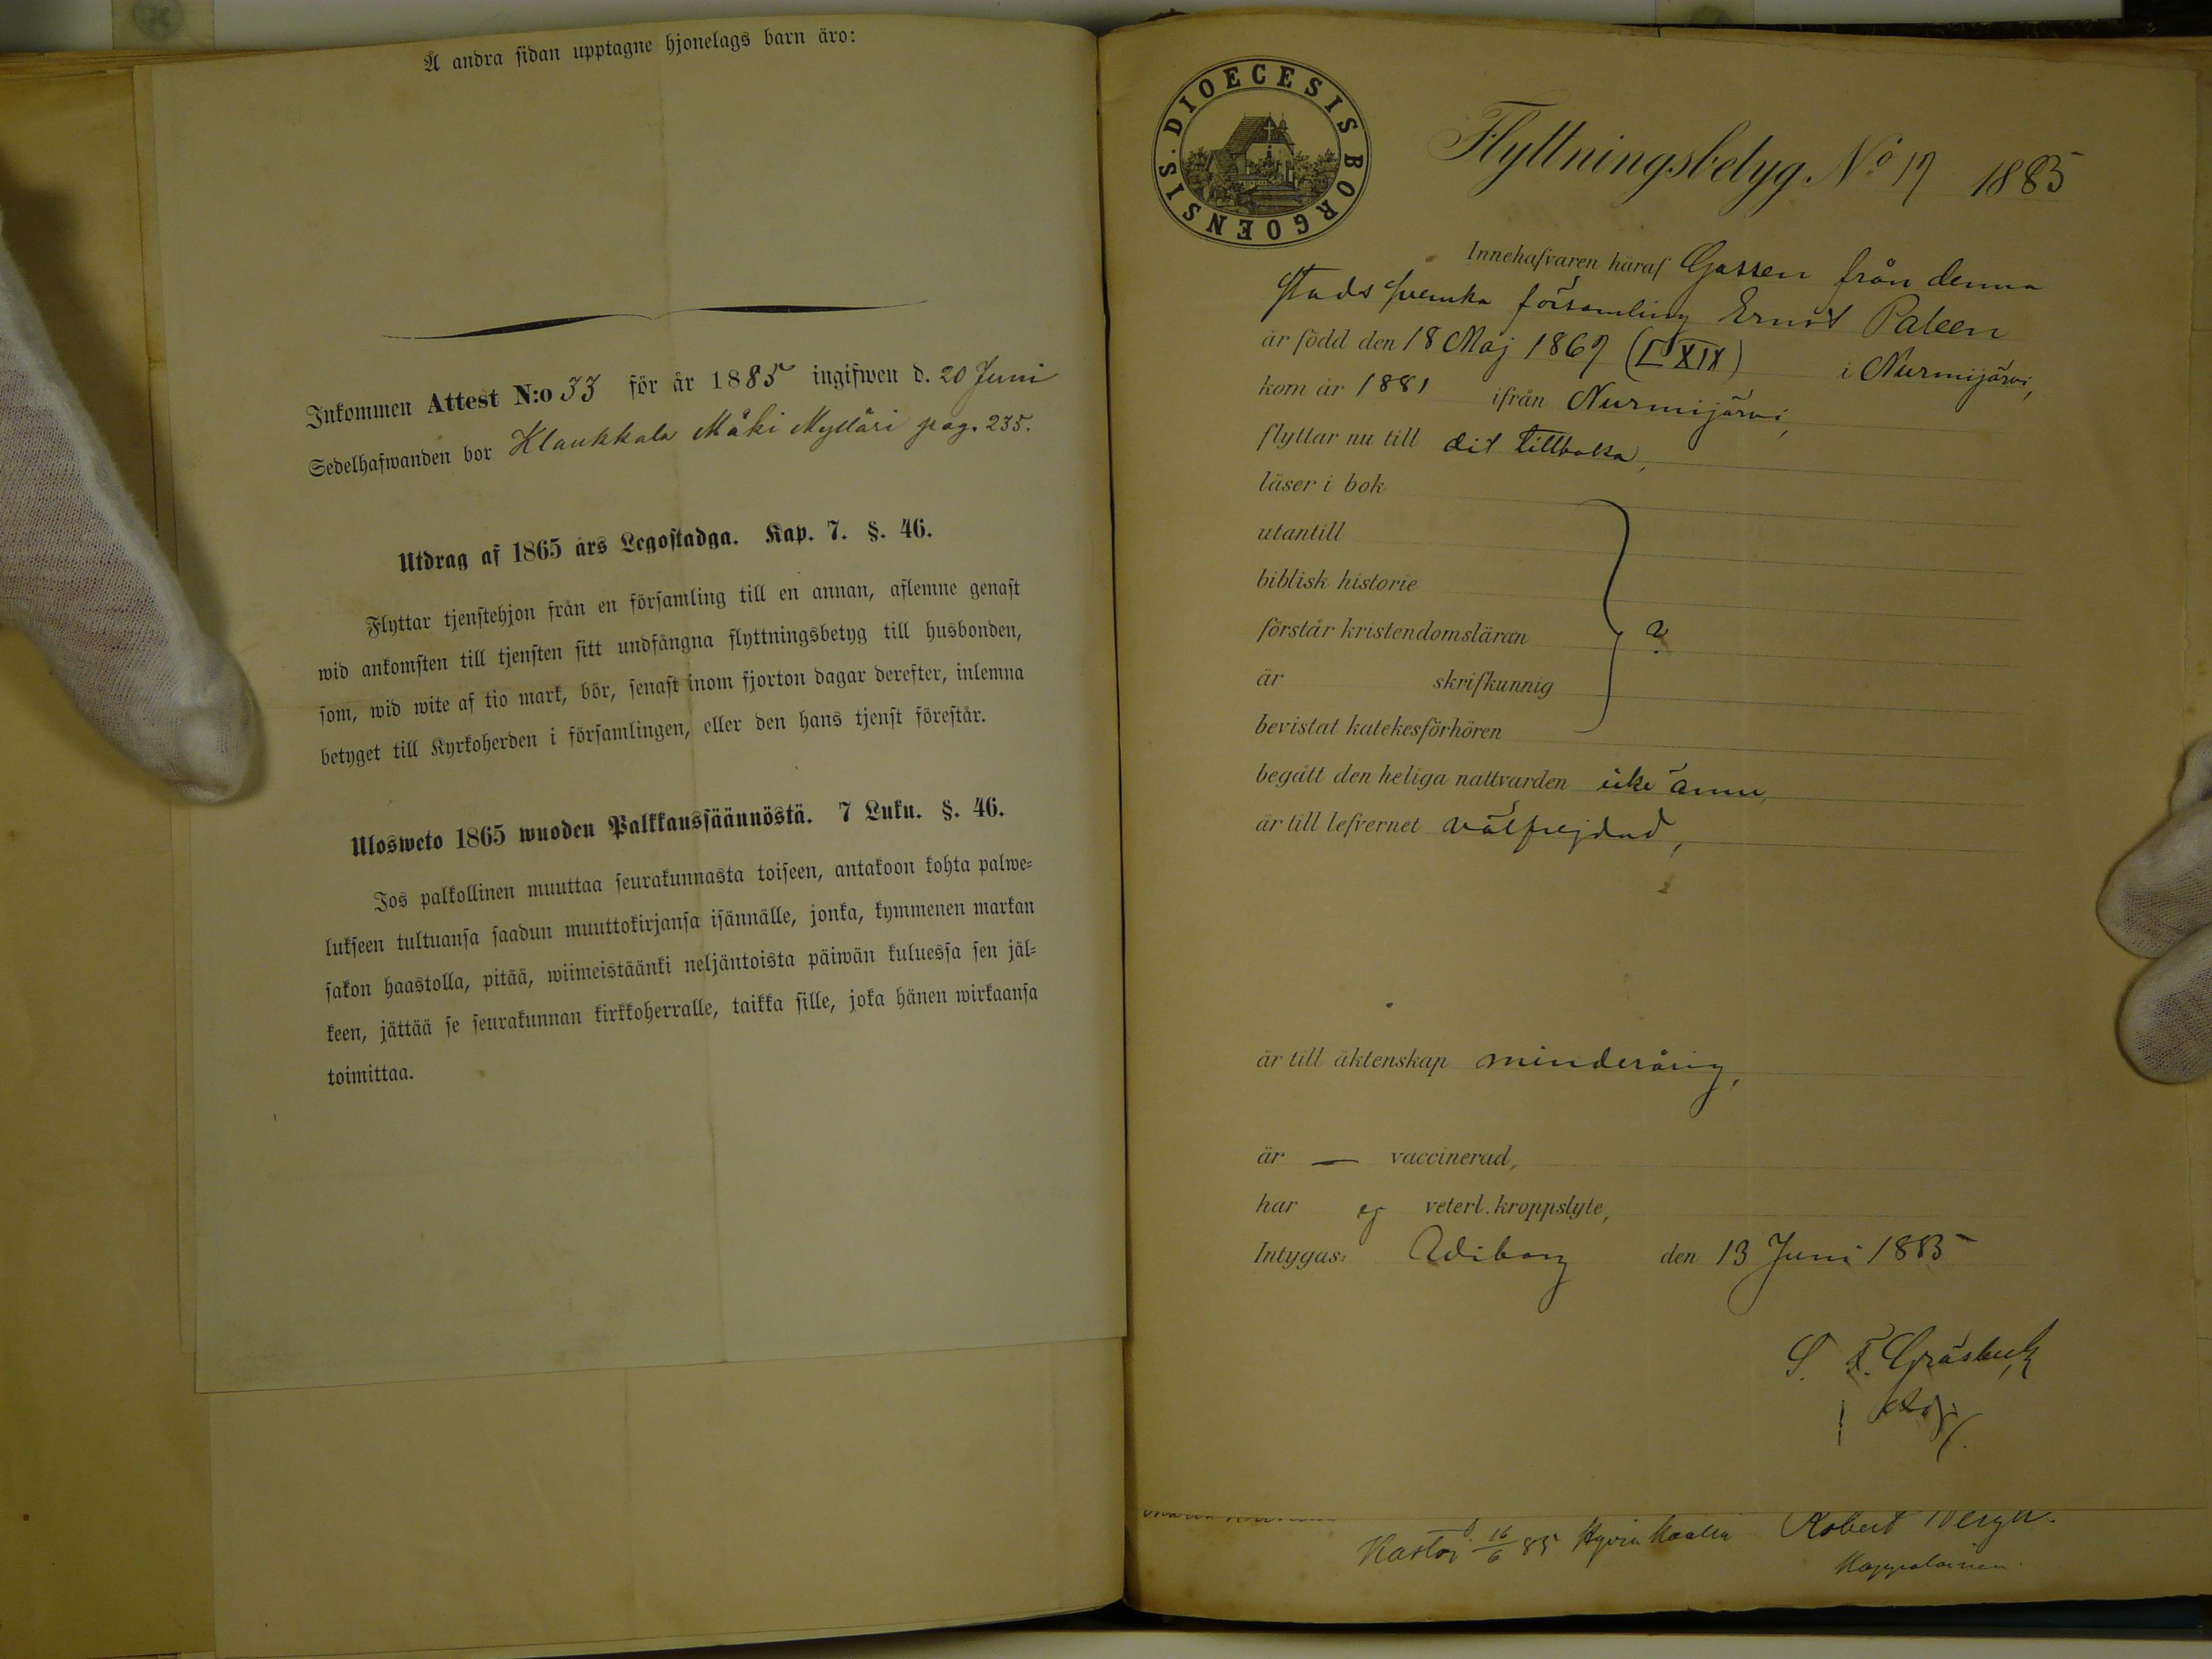 Å andra sidan upptagne hjonelags barn äro:
Inkommen Attest N:o 33 för år 1885 ingifwen d. 20 Juni
Sedelhafwanden bor Klaukkala Mäki Mylläri pag. 235.
Utdrag af 1865 års Legostadga. Kap. 7. §. 46.
Flyttar tjenstehjon från en församling till en annan, aflemne genast
wid ankomsten till tjensten sitt undfångna flyttningsbetyg till husbonden,
som, wid wite af tio mark, bör, senast inom fjorton dagar derefter, inlemna
betyget till Kyrkoherden i församlingen, eller den hans tjenst förestår.
Ulosweto 1865 wuoden Palkkaussäännöstä. 7 Luku. §. 46.
Jos palkollinen muuttaa seurakunnasta toiseen, antakoon kohta palwe-
lukseen tultuansa saadun muuttokirjansa isännälle, jonka, kymmenen markan
sakon haastolla, pitää, wiimeistäänki neljäntoista päiwän kuluessa sen jäl-
keen, jättää se seurakunnan kirkkoherralle, taikka sille, joka hänen wirkaansa
toimittaa.
DIOECESIS BORGOENSIS.
Flyttningsbetyg No 17 1885
Innehafvaren häraf Gossen från denna
stads svenska församling Ernst Paleen
är född den 18 Maj 1869 (LXIX) i Nurmijärvi,
kom år 1881 ifrån Nurmijärvi,
flyttar nu till dit tillbaka,
läser i bok
utantill
biblisk historie
förstår kristendomsläran ?
är skrifkunnig
bevistat katekesförhören
begått den heliga nattvarden icke ännu,
är till lefvernet välfrejdad,
är till äktenskap minderårig,
är — vaccinerad,
har ej veterl. kroppslyte,
Intygas: Wiborg den 13 Juni 1885
S. F. Gräsbeck
Kastoi d. 16/6 85 Hyvinkäällä Robert
Kappalainen.